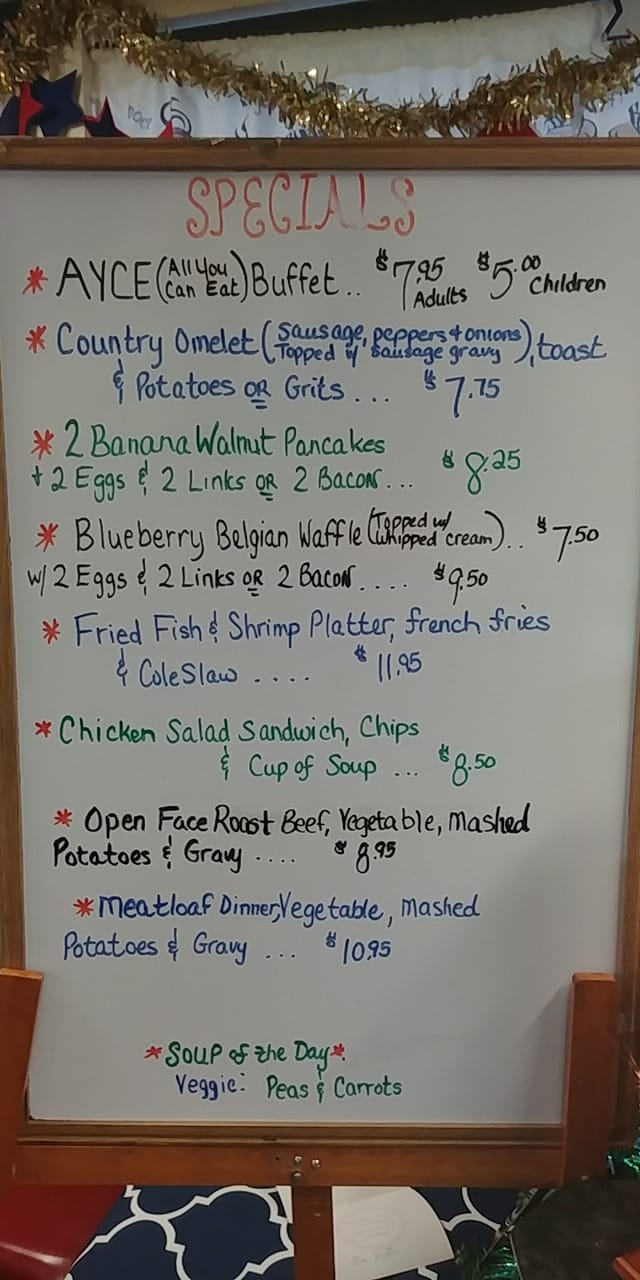 SPECIALS
* AYCE (All You Can Eat) Buffet.. $7.95 Adults $5.00 Children
* Country Omelet (Sausage, peppers + onions Topped w/ sausage gravy), toast
& Potatoes OR Grits ... $7.75
* 2 Banana Walnut Pancakes
+ 2 Eggs & 2 Links OR 2 Bacon... $8.25
* Blueberry Belgian Waffle (Topped w/ whipped cream).. $7.50
w/ 2 Eggs & 2 Links OR 2 Bacon.... $9.50
* Fried Fish & Shrimp Platter, french fries
& ColeSlaw .... $11.95
* Chicken Salad Sandwich, Chips
& Cup of Soup ... $8.50
* Open Face Roast Beef, Vegetable, Mashed
Potatoes & Gravy .... $8.95
* Meatloaf Dinner, Vegetable, Mashed
Potatoes & Gravy ... $10.95
* SOUP of the Day *
Veggie: Peas & Carrots